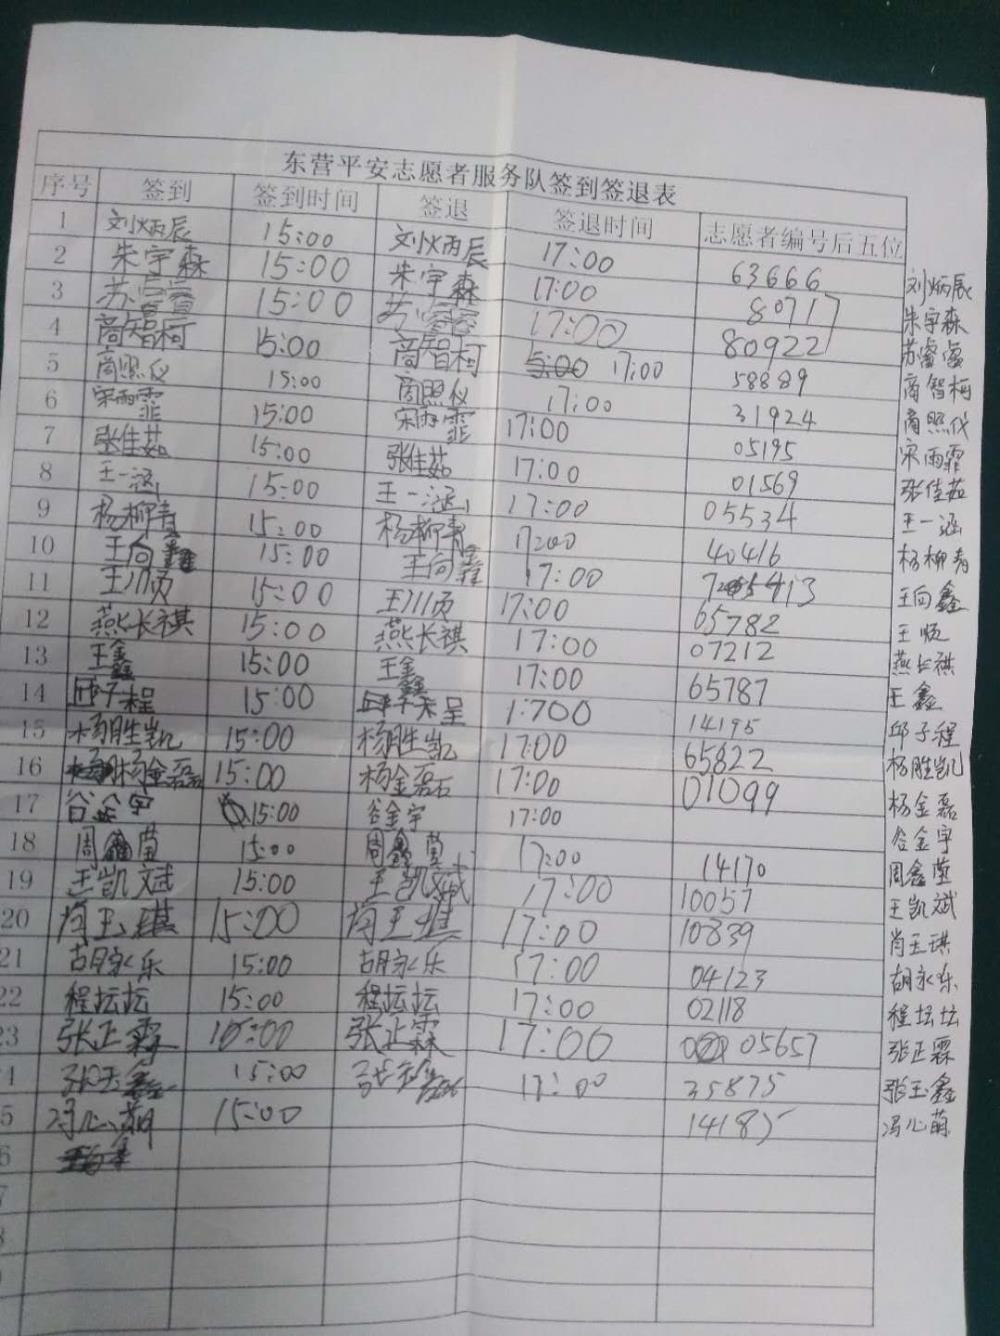 东营平安志愿者服务队签到签退表
序号 签到 签到时间 签退 签退时间 志愿者编号后五位
1 刘炳辰 15:00 刘炳辰 17:00 63666 刘炳辰
2 朱宇森 15:00 朱宇森 17:00 80717 朱宇森
3 15:00 17:00 80922 苏睿
4 商智柯 15:00 商智柯 17:00 58889 商智柯
5 商照仪 15:00 商照仪 17:00 31924 商照仪
6 宋雨霏 15:00 宋雨霏 17:00 05195 宋雨霏
7 张佳茹 15:00 张佳茹 17:00 01569 张佳茹
8 王一涵 15:00 王一涵 17:00 05534 王一涵
9 杨柳青 15:00 杨柳青 17:00 40416 杨柳青
10 王向鑫 15:00 王向鑫 17:00 王向鑫
11 王顺 15:00 王顺 17:00 65782 王顺
12 燕长祺 15:00 燕长祺 17:00 07212 燕长祺
13 王鑫 15:00 王鑫 17:00 65787 王鑫
14 邱子程 15:00 邱子程 1:700 14195 邱子程
15 杨胜凯 15:00 杨胜凯 17:00 65822 杨胜凯
16 杨金磊 15:00 杨金磊 17:00 01099 杨金磊
17 谷金宇 15:00 谷金宇 17:00 谷金宇
18 周鑫莹 15:00 周鑫莹 17:00 14170 周鑫莹
19 王凯斌 15:00 王凯斌 17:00 10057 王凯斌
20 肖玉琪 15:00 肖玉琪 17:00 10839 肖玉琪
21 胡永乐 15:00 胡永乐 17:00 04123 胡永乐
22 程坛坛 15:00 程坛坛 17:00 02118 程坛坛
23 张正霖 15:00 张正霖 17:00 05657 张正霖
4 张玉鑫 15:00 张玉鑫 17:00 35875 张玉鑫
5 冯心萌 15:00 14185 冯心萌
6
7
8
9